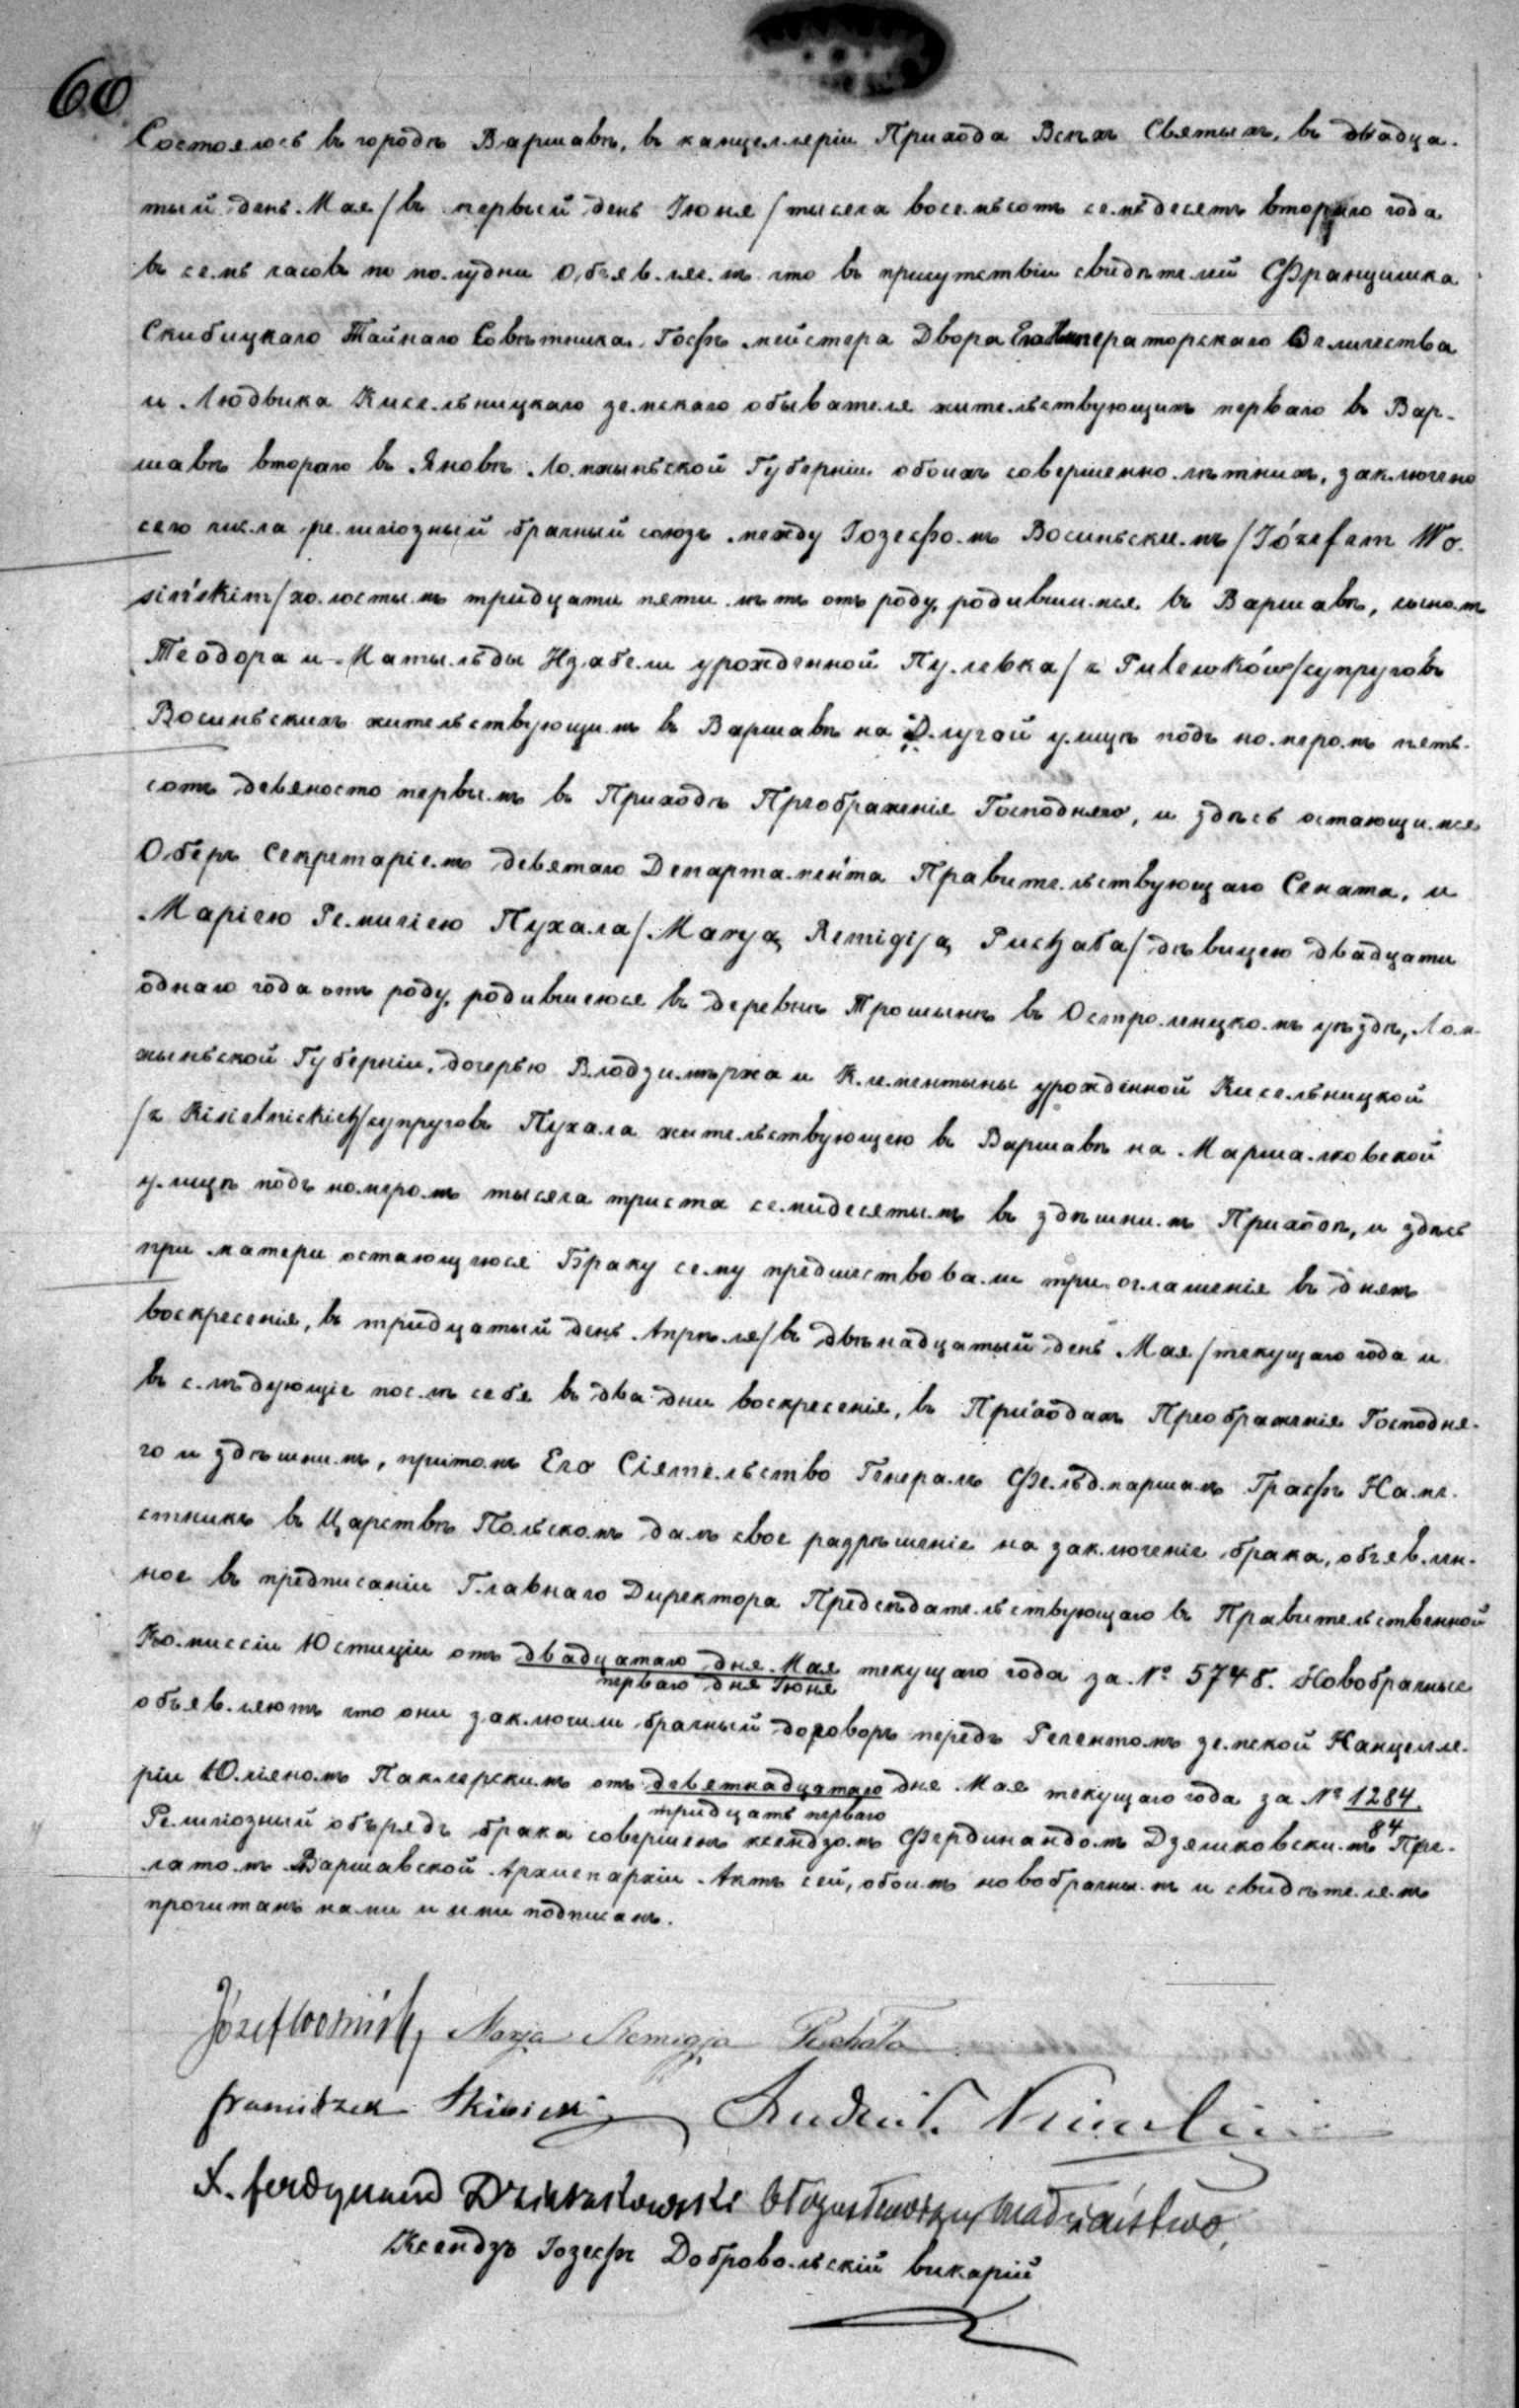 60
Состоялось въ городѣ Варшавѣ, въ канцелляріи Прихода Всѣхъ Святыхъ, въ двадца-
тый день Мая /въ первый день Іюня/ тысяча восемьсотъ семьдесятъ втораго года
въ семь часовъ по полудни Объявляемъ что въ присутствіи свидѣтелей Францишка
Скибицкаго Тайнаго Совѣтника, Гофъ мейстера Двора Его Императорскаго Величества
и Людвика Кисельницкаго земскаго обывателя жительствующихъ перваго въ Вар-
шавѣ втораго въ Яновѣ Ломжыньской Губерніи обоихъ совершеннолѣтнихъ, заключено
сего числа религіозный брачный союзъ между Іозефомъ Восиньскимъ /Józefem Wo-
sińskim/ холостымъ тридцати пяти лѣтъ отъ роду, родившимся въ Варшавѣ, сыномъ
Теодора и Матыльды Изабели урожденной Пулевка /z Pulewków/ супруговъ
Восиньскихъ жительствующимъ въ Варшавѣ на Длугой улицѣ подъ номеромъ пять-
сотъ девяносто первымъ въ Приходѣ Преображенія Господняго, и здѣсь остающимся
Оберъ Секретаріемъ девятаго Департамента Правительствующаго Сената, и
Маріею Ремигіею Пухала /Maryą Remigiją Puchała/ дѣвицею двадцати
однаго года отъ роду, родившеюся въ деревнѣ Трошынѣ въ Остроленцкомъ уѣздѣ, Лом-
жыньской Губерніи, дочерью Влодзимѣржа и Клементыны урожденной Кисельницкой
/z Kisielnickich/ супруговъ Пухала жительствующею въ Варшавѣ на Маршалковской
улицѣ подъ номеромъ тысяча триста семидесятымъ въ здѣшнимъ Приходѣ, и здѣсь
при матери остающеюся Браку сему предшествовали три оглашенія въ дняхъ
воскресенія, въ тридцатый день Апрѣля /въ двѣнадцатый день Мая/ текущаго года и
въ слѣдующіе послѣ себя въ два дни воскресенія, въ Приходахъ Преображенія Господня-
го и здѣшнимъ, притомъ Его Сіятельство Генералъ Фельдмаршалъ Графъ Намѣ-
стникъ въ Царствѣ Польскомъ далъ свое разрѣшеніе на заключеніе брака, объявлен-
ное въ предписаніи Главнаго Директора Предсѣдательствующаго въ Правительственной
Комиссіи Юстиціи отъ двадцатаго дня Мая текущаго года за № 5748. Новобрачные
перваго дня Іюня
объявляютъ что они заключили брачный договоръ передъ Регентомъ земской Канцелля-
ріи Юліяномъ Паклерскимъ отъ девятнадцатаго дня Мая текущаго года за № 1284
тридцать перваго
84
Религіозный обърядъ брака совершенъ ксендзомъ Фердинандомъ Дзяшковскимъ Пре-
латомъ Варшавской Архиепархіи. Актъ сей, обоимъ новобрачнымъ и свидѣтелямъ
прочитанъ нами и ими подписанъ.
Józef Wosiński Marja Remigja Puchała
Franciszek Skibicki
X. Ferdynand Dziaszkowski błogosławiący małżeństwo,
Ксендзъ Іозефъ Добровольскій викарій